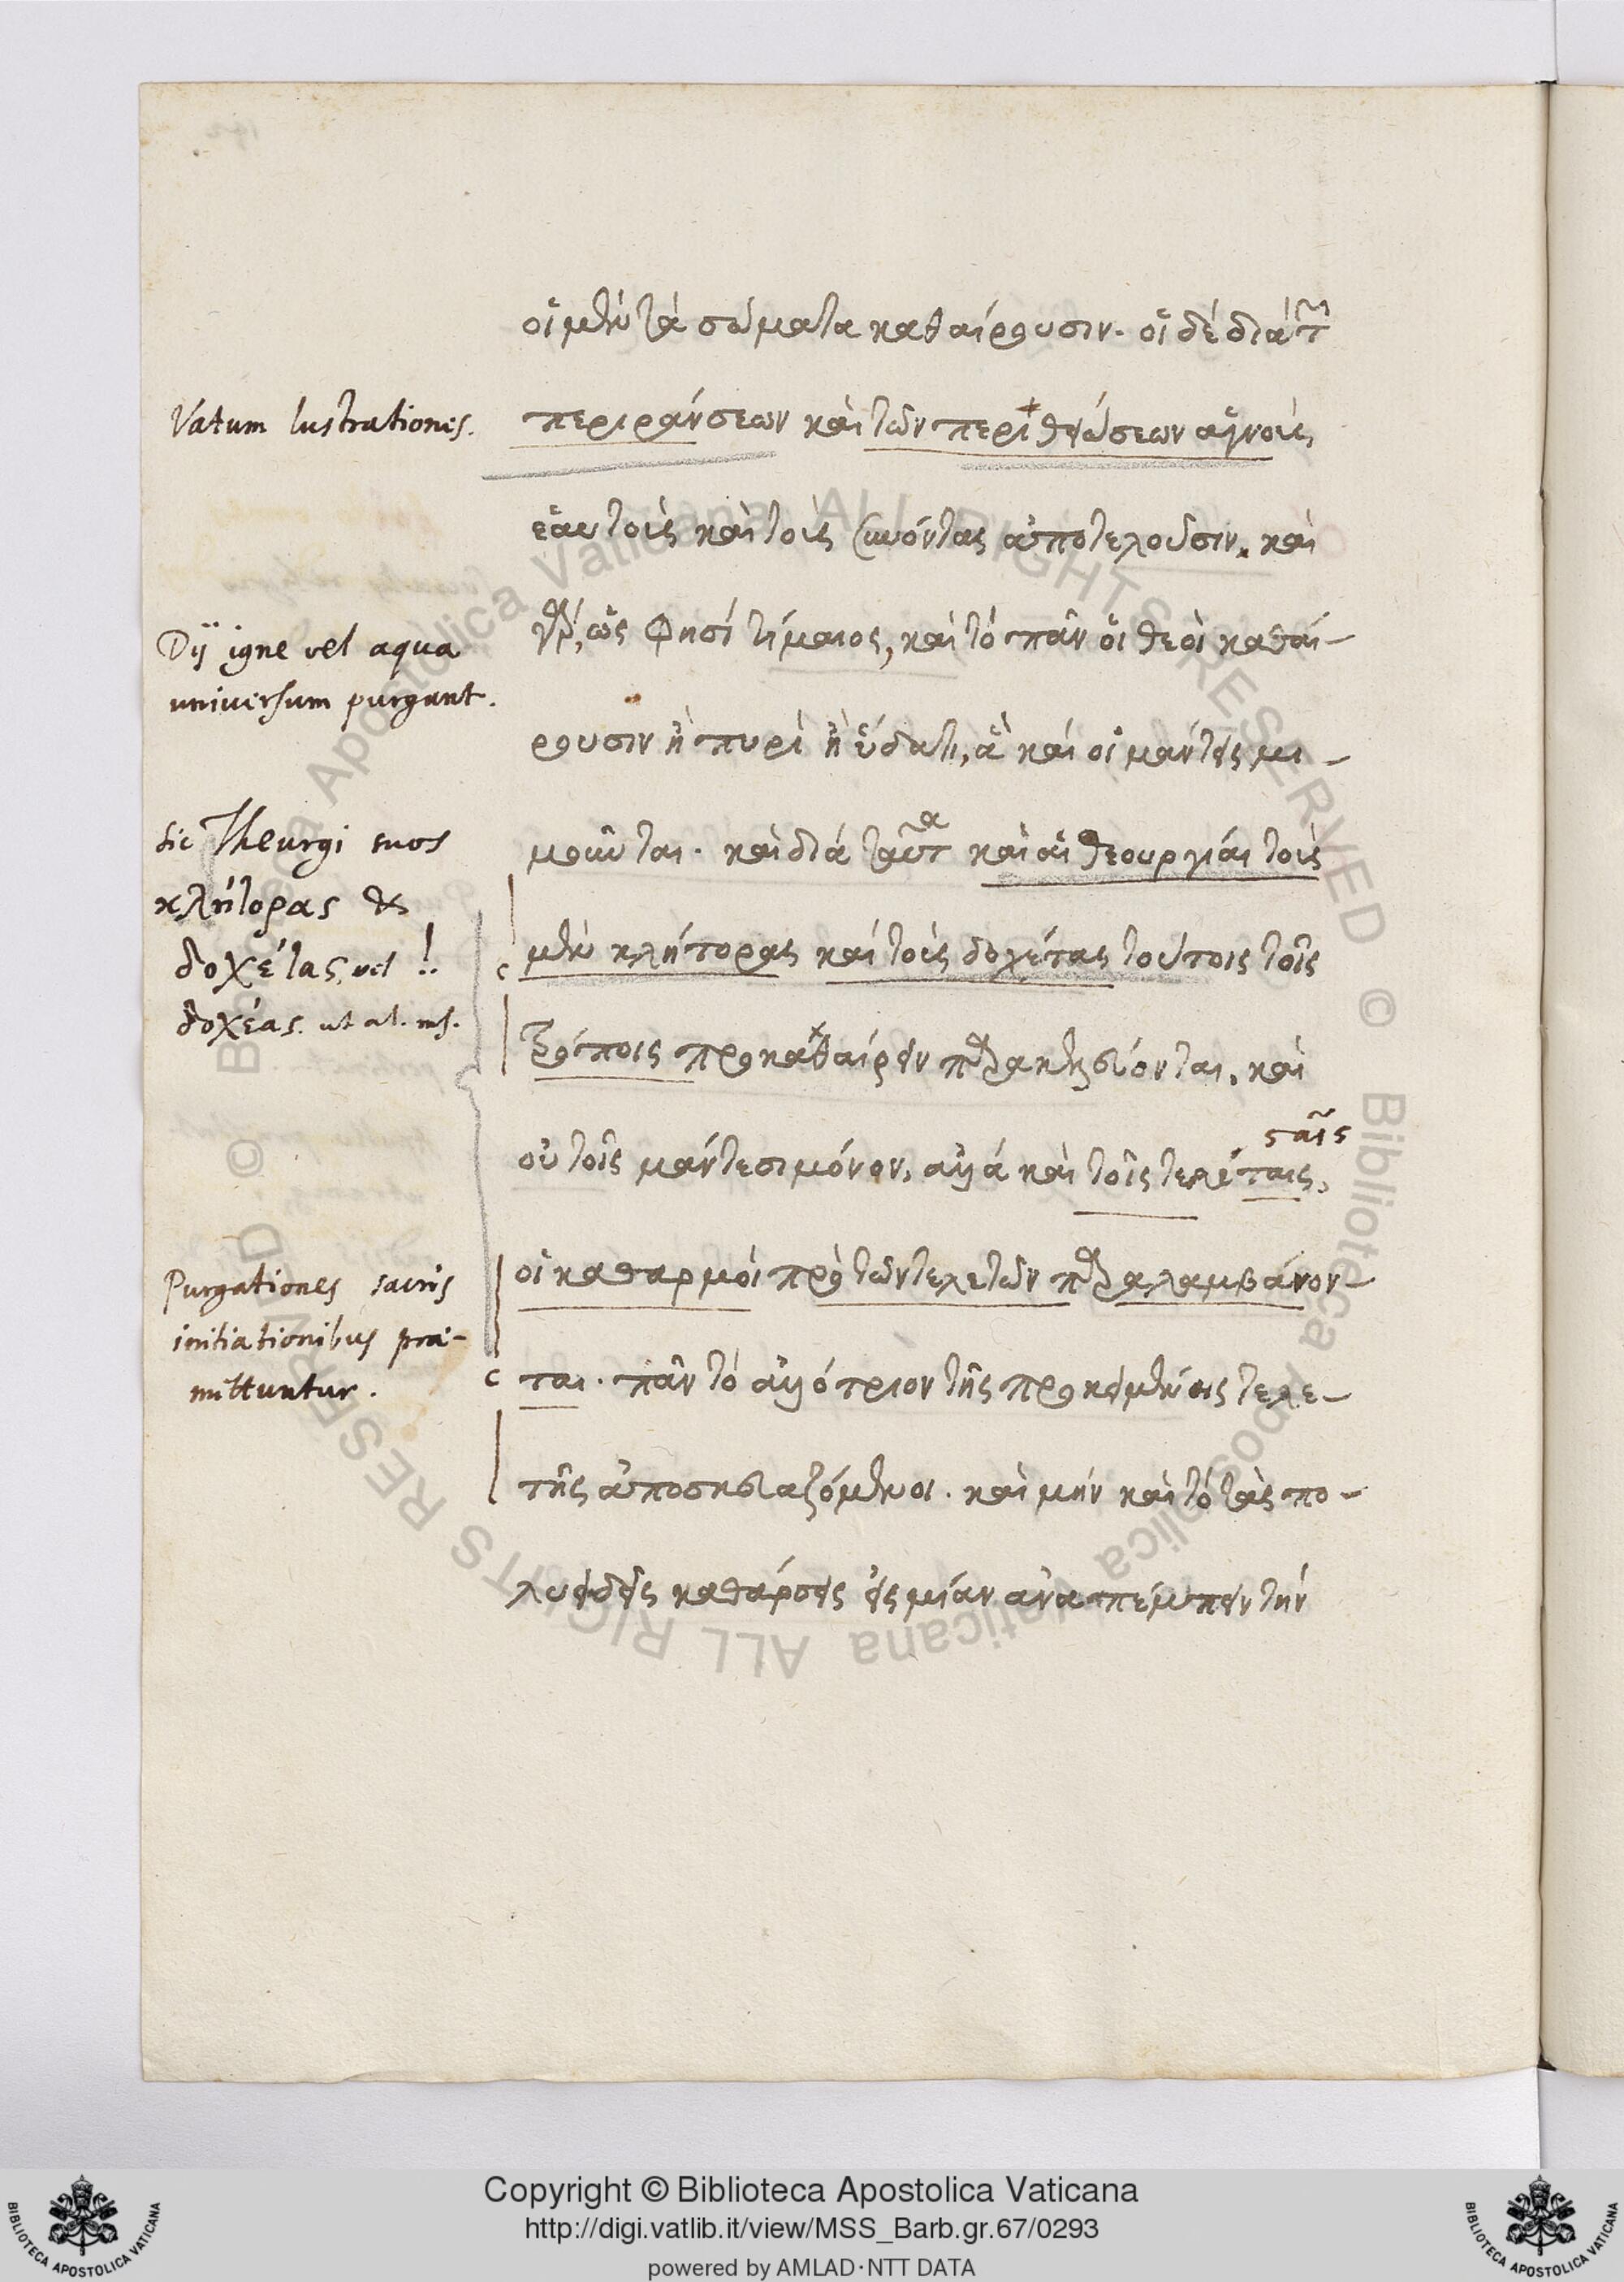 οἱ μὲν τὰ σώματα καθαίρουσιν. οἱ δὲ διὰ τῶν
Vatum lustrationes.
περιράνσεων καὶ τῶν περιθειώσεων ἁγνοὺς
ἑαυτοὺς καὶ τοὺς συνόντας ἀποτελοῦσιν. καὶ
Dij igne vel aqua
universum purgant.
γὰρ, ὥς φησί τίμαιος, καὶ τὸ πᾶν οἱ θεοὶ καθαί-
ρουσιν ἢ πυρὶ ἢ ὕδατι, ἃ καὶ οἱ μάντεις μι-
sic Theurgi suos
κλήτορας &
δοχέτας, vel !.
δοχέας. ut al. ms.
μοῦνται. καὶ διὰ ταῦτα καὶ αἱ θεουργίαι τοὺς
c μὲν κλήτορας καὶ τοὺς δοχέτας τούτοις τοῖς
τρόποις προκαθαίρειν παρακελεύονται. καὶ
σταῖς
οὐ τοῖς μάντεσι μόνον, ἀλλὰ καὶ τοῖς τελέταις,
Purgationes sacris
initiationibus præ-
mittuntur.
οἱ καθαρμοὶ πρὸ τῶν τελετῶν παραλαμβάνον-
c ται. πᾶν τὸ ἀλλότριον τῆς προκειμένης τελε-
τῆς ἀποσκευαζόμενοι. καὶ μὴν καὶ τὸ τὰς πο-
λυειδεῖς καθάρσεις εἰς μίαν ἀναπέμπειν τὴν
Copyright © Biblioteca Apostolica Vaticana
http://digi.vatlib.it/view/MSS_Barb.gr.67/0293
powered by AMLAD·NTT DATA
BIBLIOTECA APOSTOLICA VATICANA
BIBLIOTECA APOSTOLICA VATICANA
© Biblioteca Apostolica Vaticana ALL RIGHTS RESERVED © Biblioteca Apostolica Vaticana ALL RIGHTS RESERVED